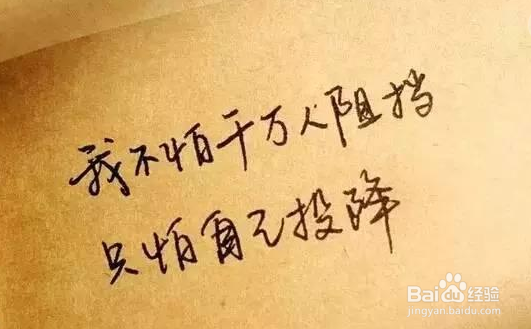 我不怕千万人阻挡
只怕自己投降
Baidu经验
jingyan.baidu.com